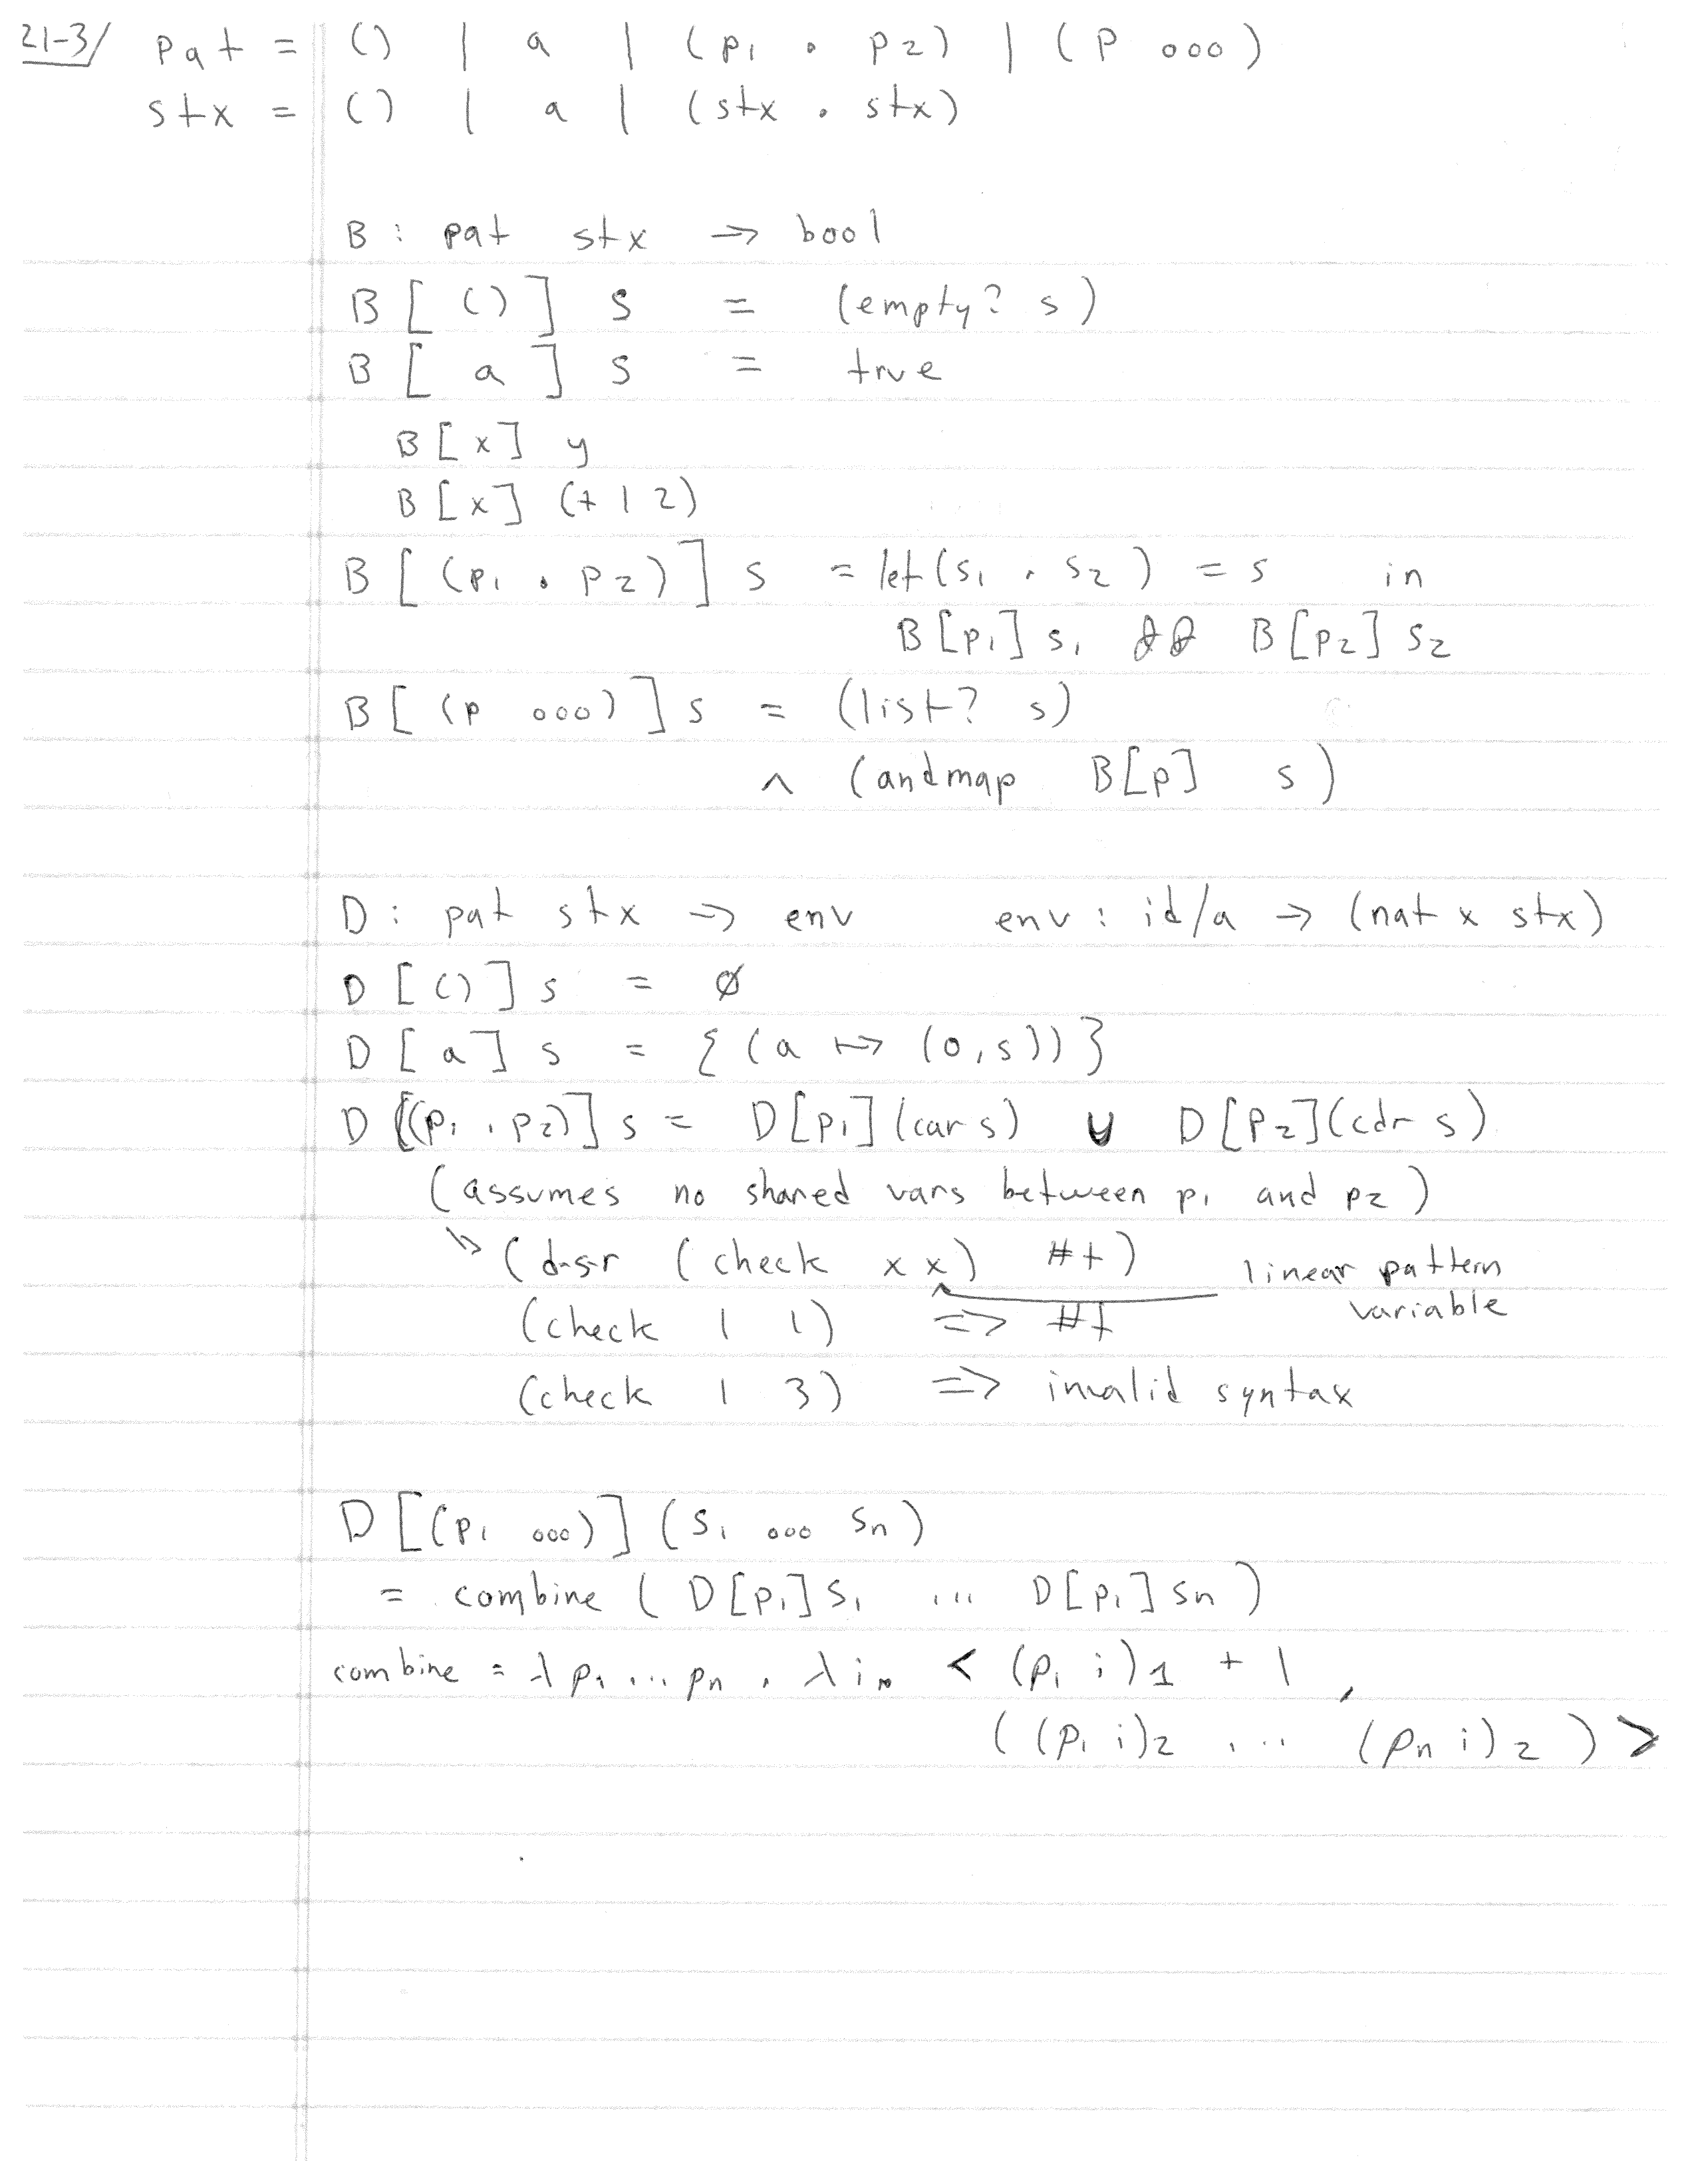 21-3/ pat = () | a | (p₁ . p₂) | (p ooo)
stx = () | a | (stx . stx)
B : pat stx → bool
B [ () ] s = (empty? s)
B [ a ] s = true
B [x] y
B [x] (+ 1 2)
B [ (p₁ . p₂) ] s = let (s₁ . s₂) = s in
B [p₁] s₁ && B [p₂] s₂
B [ (p ooo) ] s = (list? s)
∧ (andmap B[p] s)
D : pat stx → env env : id/a → (nat x stx)
D [()] s = ∅
D [a] s = { (a ↦ (0,s)) }
D [(p₁ . p₂)] s = D[p₁](car s) ∪ D[p₂](cdr s)
(assumes no shared vars between p₁ and p₂)
↳ (d-s-r (check x x) #t) linear pattern
variable
(check 1 1) => #t
(check 1 3) => invalid syntax
D [(p₁ ooo)] (s₁ ooo sn)
= combine ( D[p₁] s₁ ... D[p₁] sn )
combine = λ p₁ ... pn . λ i. < (p₁ i)1 + 1 ,
( (p₁ i)2 ... (pn i)2 ) >